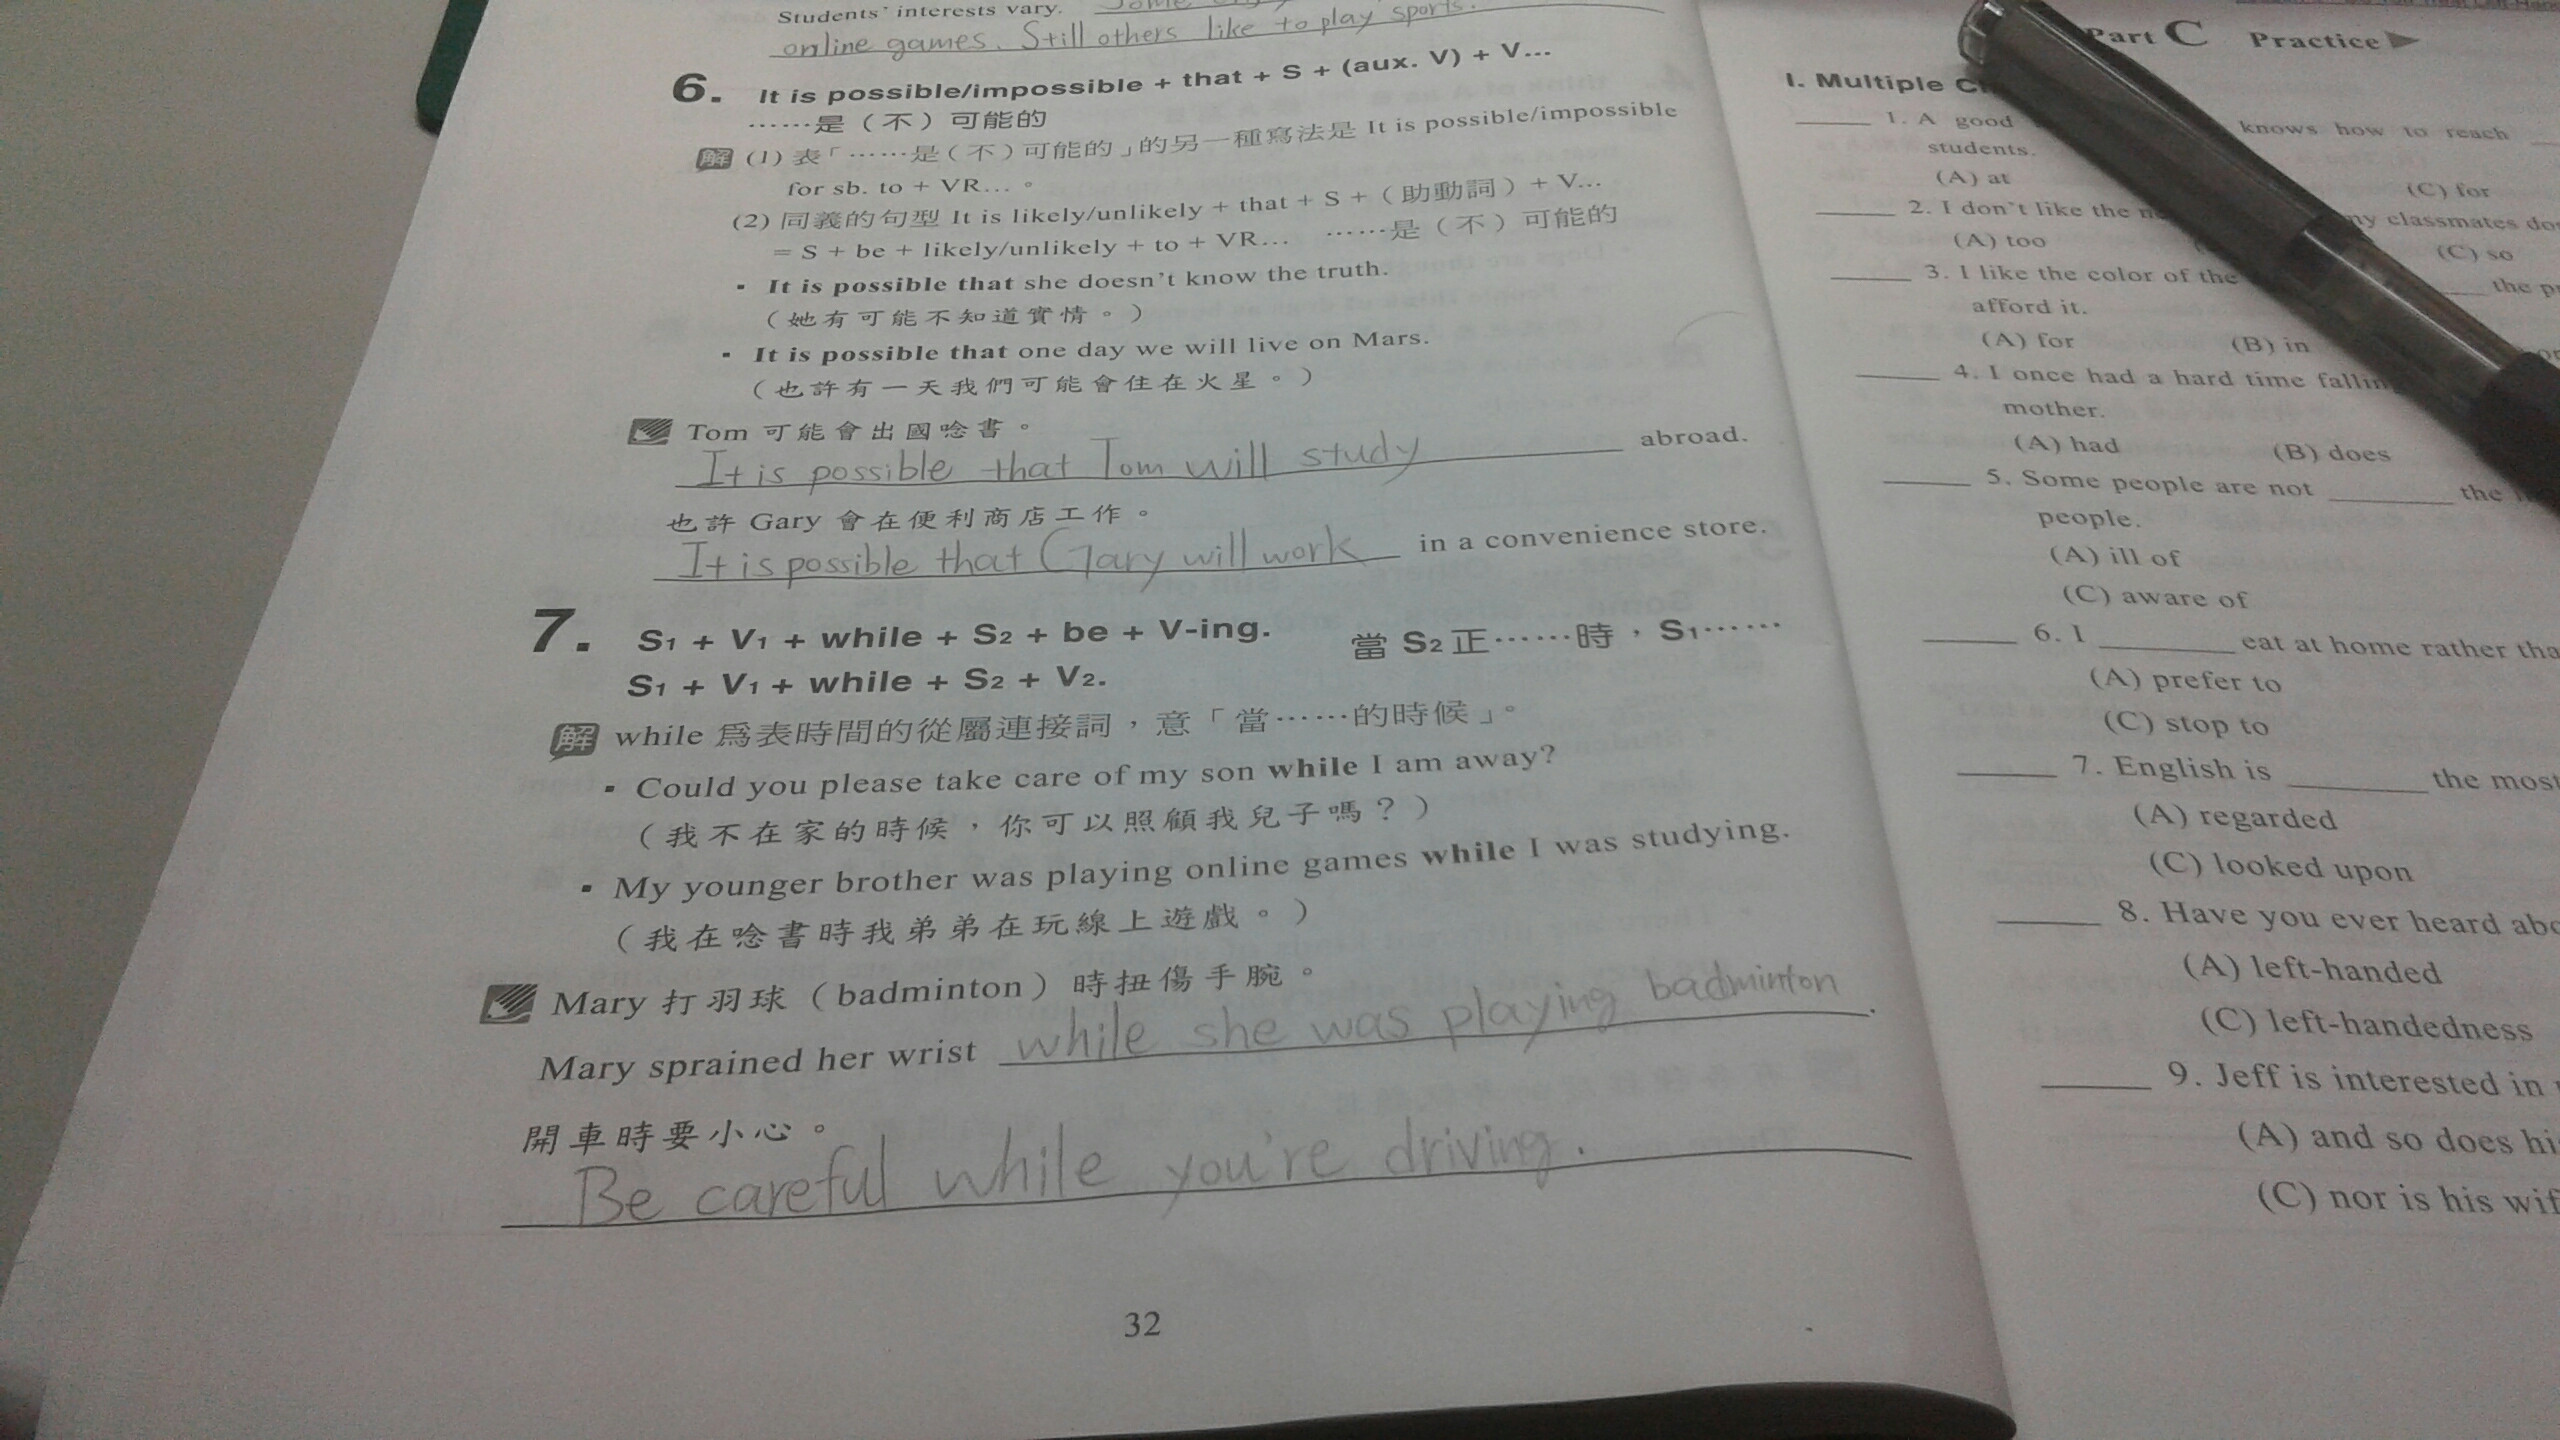 Students' interests vary. Some
online games. Still others like to play sports.
6. It is possible/impossible + that + S + (aux. V) + V...
……是（不）可能的
解 (1) 表「……是（不）可能的」的另一種寫法是 It is possible/impossible
for sb. to + VR...。
(2) 同義的句型 It is likely/unlikely + that + S +（助動詞）+ V...
= S + be + likely/unlikely + to + VR... ……是（不）可能的
▪ It is possible that she doesn't know the truth.
（她有可能不知道實情。）
▪ It is possible that one day we will live on Mars.
（也許有一天我們可能會住在火星。）
Tom 可能會出國唸書。
It is possible that Tom will study abroad.
也許 Gary 會在便利商店工作。
It is possible that Gary will work in a convenience store.
7. S1 + V1 + while + S2 + be + V-ing. 當 S2 正……時，S1……
S1 + V1 + while + S2 + V2.
解 while 為表時間的從屬連接詞，意「當……的時候」。
▪ Could you please take care of my son while I am away?
（我不在家的時候，你可以照顧我兒子嗎？）
▪ My younger brother was playing online games while I was studying.
（我在唸書時我弟弟在玩線上遊戲。）
Mary 打羽球（badminton）時扭傷手腕。
Mary sprained her wrist while she was playing badminton.
開車時要小心。
Be careful while you're driving.
32
Part C Practice
I. Multiple
1. A good knows how to reach
students.
(A) at (C) for
2. I don't like the my classmates
(A) too (C) so
3. I like the color of the the
afford it.
(A) for (B) in
4. I once had a hard time
mother.
(A) had (B) does
5. Some people are not ______ the
people.
(A) ill of
(C) aware of
6. I ______ eat at home rather
(A) prefer to
(C) stop to
7. English is ______ the most
(A) regarded
(C) looked upon
8. Have you ever heard
(A) left-handed
(C) left-handedness
9. Jeff is interested in
(A) and so does
(C) nor is his